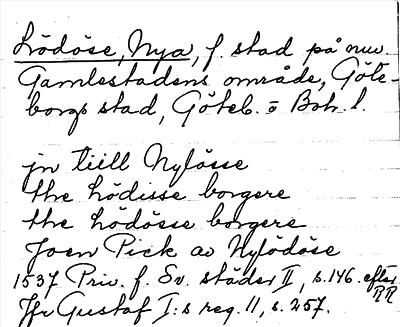 Lödöse, Nya, f. stad på nuv.
Gamlestadens område, Göte-
borgs stad, Göteb. o Boh. l.
jn tiill Nylösse
the Lödisse borgere
the Lödösse borgere
Joen Pick av Nylödöse
1537 Priv. f. Sv. städer II, s. 146. efter RR
Jfr Gustaf I:s reg. 11, s. 257.